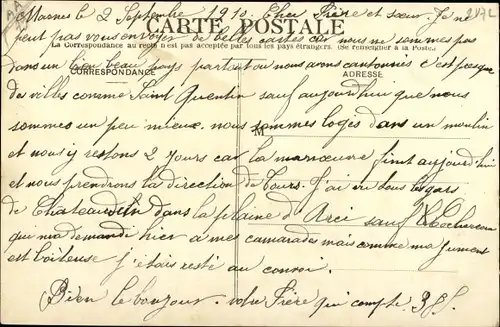 Marnes le 2 Septembre 1910. Cher Frère et sœur. Je ne
CARTE POSTALE
peut pas vous envoyer de belles cartes car nous ne sommes pas
La Correspondance au recto n'est pas acceptée par tous les pays étrangers. (Se renseigner à la Poste.)
dans un bien beau pays partout ou nous avons cantonnés c'est presque
CORRESPONDANCE
ADRESSE
des villes comme Saint Quentin sauf aujourd'hui que nous
sommes un peu mieux. nous sommes logés dans un moulin
M
et nous y restons 2 jours car la manœuvre finit aujourd'hui
et nous prendrons la direction de Tours. J'ai vu tous les gars
de Chateaudun dans la plaine d' sauf
qui ma demandé hier a mes camarades mais comme ma jument
est boiteuse j'étais resté au convoi.
Bien le bonjour. votre Frère qui compte